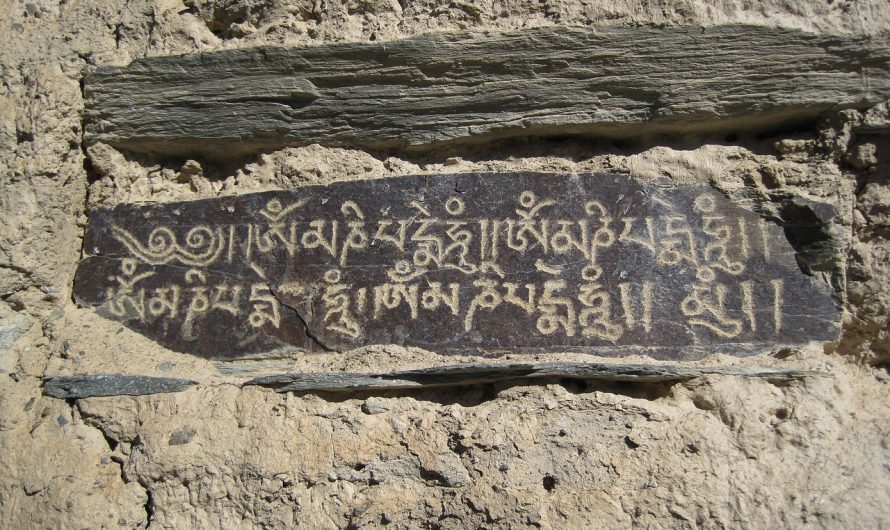 ༄༅།།ཨོཾ་མ་ཎི་པདྨེ་ཧཱུྃ།།ཨོཾ་མ་ཎི་པདྨེ་ཧཱུྃ།།
ཨོཾ་མ་ཎི་པདྨེ་ཧཱུྃ།ཨོཾ་མ་ཎི་པདྨེ་ཧཱུྃ།།